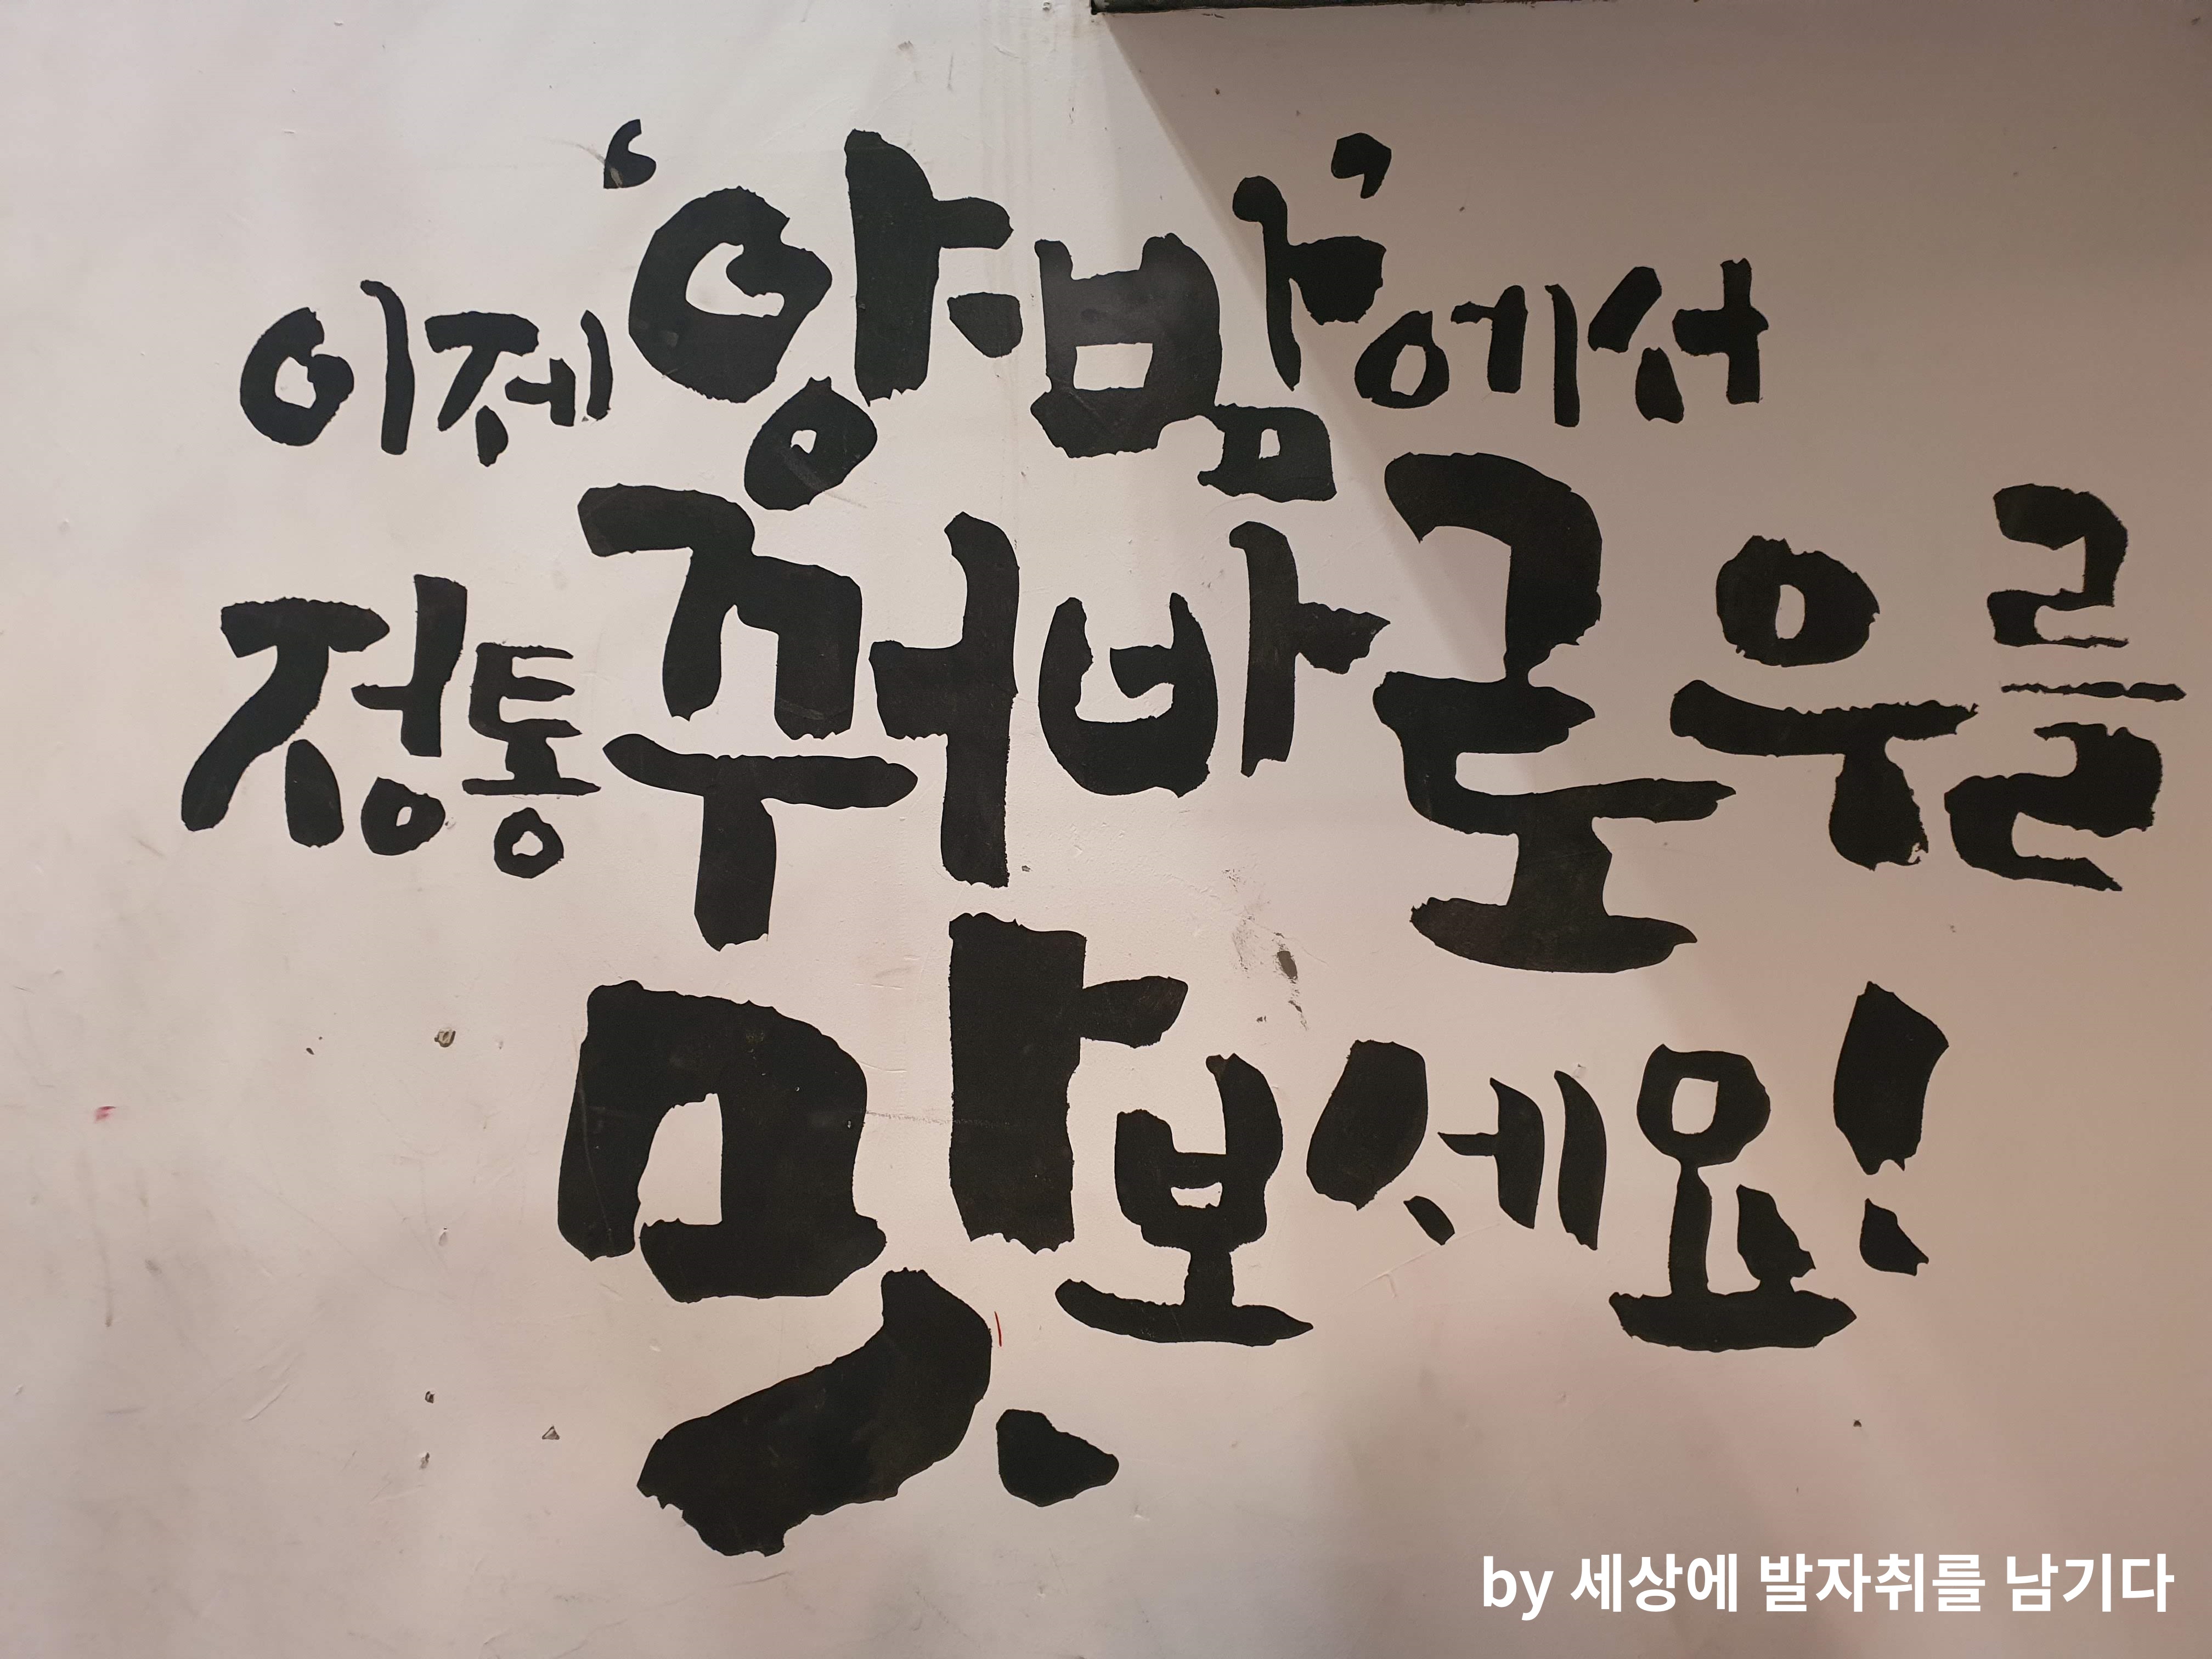 이제 '양밤'에서
정통 꿔바로우를
맛보세요!
by 세상에 발자취를 남기다